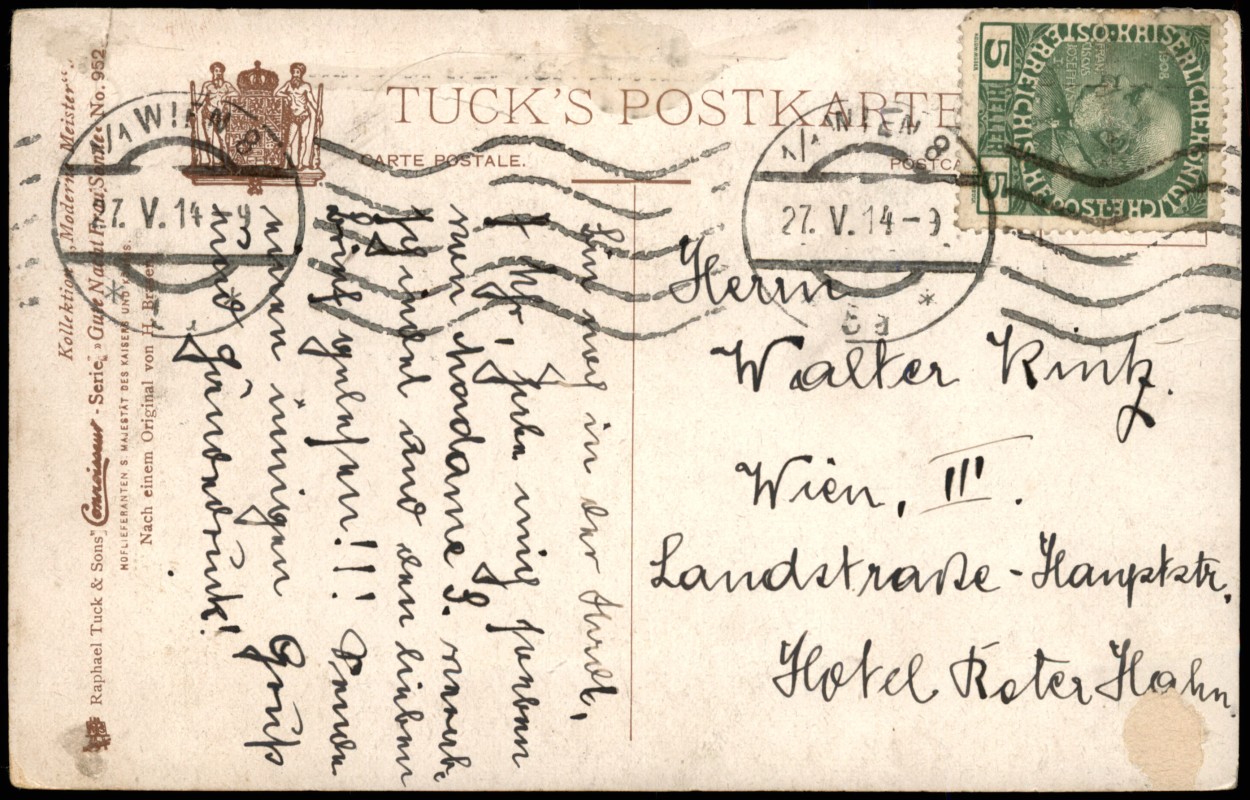 TUCK'S POSTKARTE
CARTE POSTALE.
POSTCA
ÖSTERREICHISCHE
5 HELLER 5
1908
1/1 WIEN 8
27. V. 14 - 9
1/1 WIEN 8
27. V. 14 - 9
Herrn
Walter Kintz.
Wien, III.
Landstraße - Hauptstr.
Hotel Roter Hahn.
Bin noch in der
7 Uhr, habe mich soeben
von Madame S.
und den lieben
!!! Sende
einen innigen Gruß
und Händedruck!
Kollektion „Moderne Meister“.
Raphael Tuck & Sons" Connoisseur - Serie, » Gute Nacht Frau Sonne« No. 952
HOFLIEFERANTEN S. MAJESTÄT DES KAISERS UND KÖNIGS.
Nach einem Original von H.